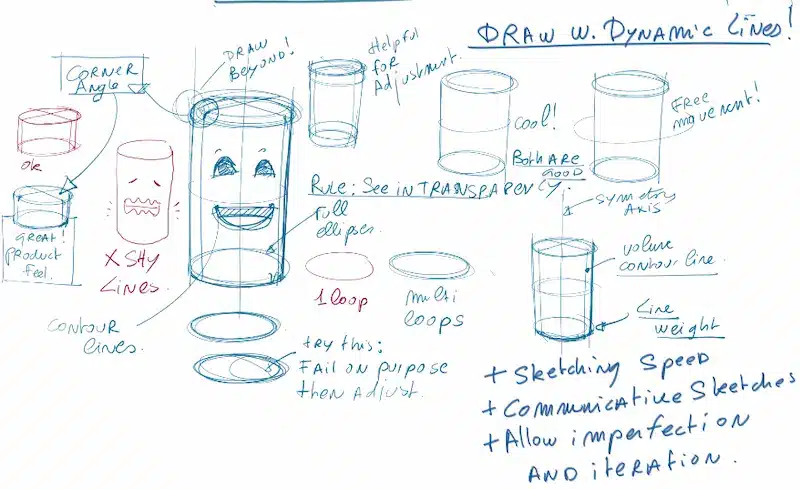 DRAW W. DYNAMIC LINES!
DRAW
BEYOND!
CORNER
Angle
Helpful
for
Adjustment.
cool!
Free
movement!
Both ARE
GOOD
ok
Rule: See in TRANSPARENCY.
Full
ellipses
symmetry
AXIS
GREAT!
product
feel.
X SHY
Lines.
1 loop
multi
loops
volume
contour line.
Line
weight
CONTOUR
lines.
try this:
FAIL ON purpose
then Adjust.
+ Sketching Speed
+ Communicative Sketches
+ Allow imperfection
AND iteration.